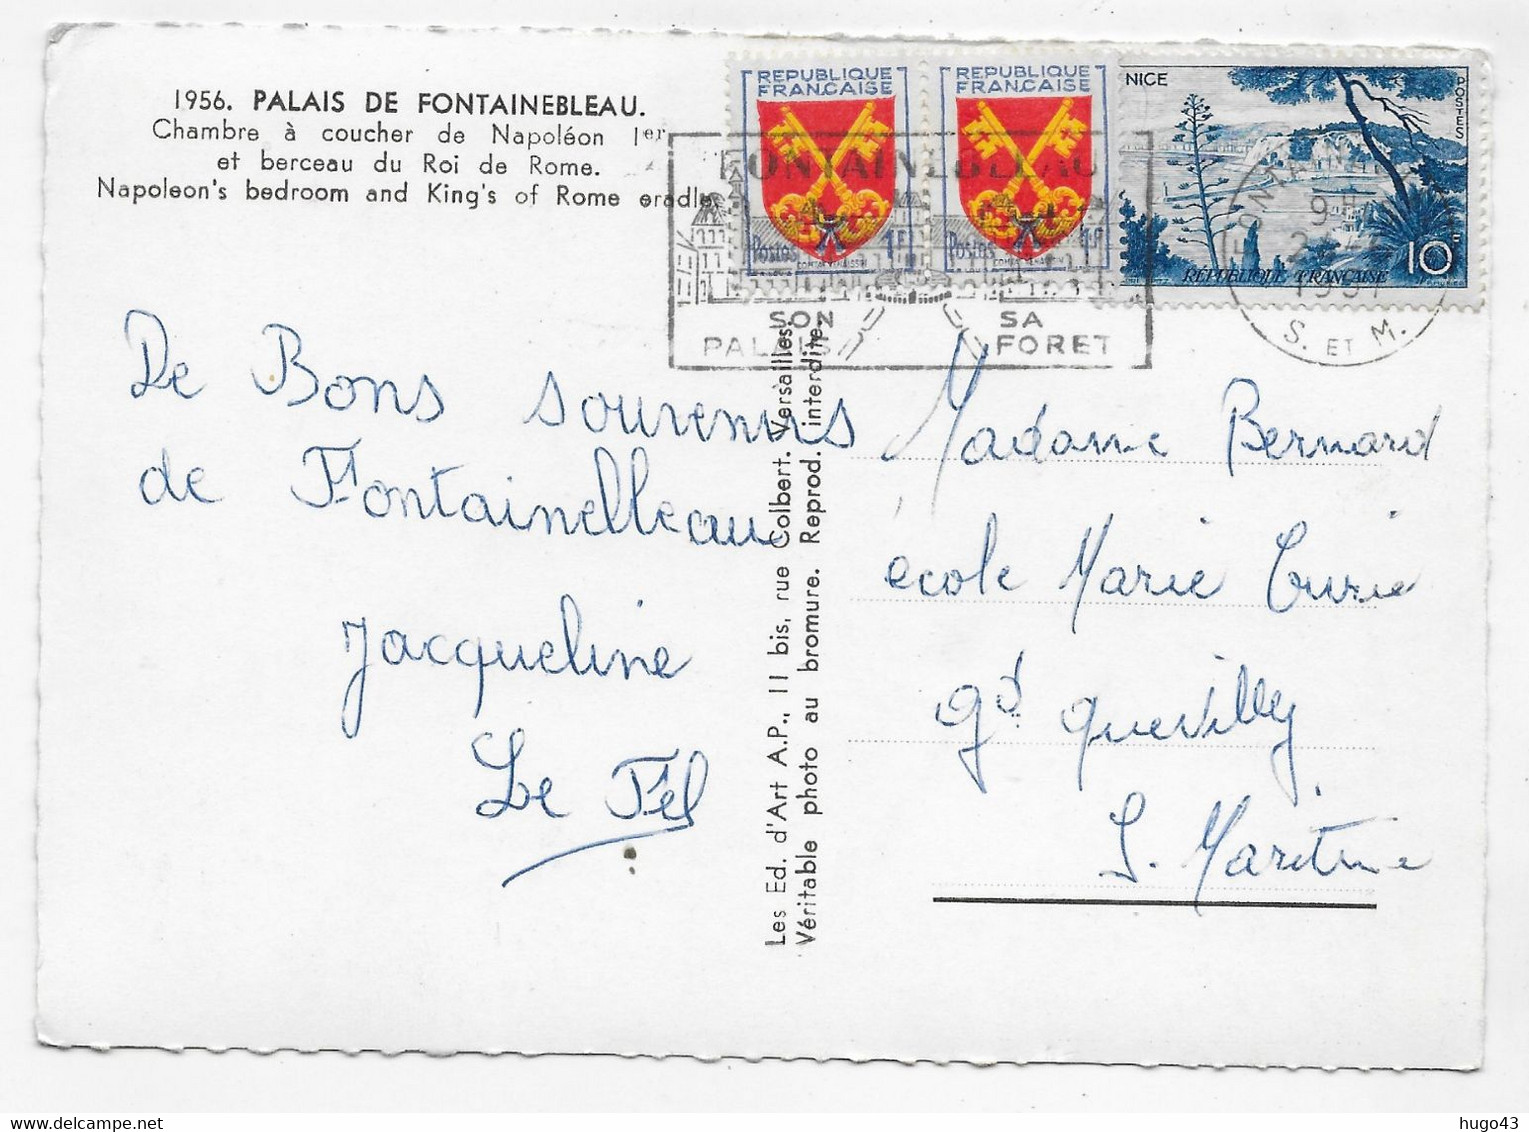 1956. PALAIS DE FONTAINEBLEAU.
Chambre à coucher de Napoléon 1er
et berceau du Roi de Rome.
Napoleon's bedroom and King's of Rome eradle.
REPUBLIQUE
FRANÇAISE
Postes 1F
COMTAT VENAISSIN
REPUBLIQUE
FRANÇAISE
Postes 1F
COMTAT VENAISSIN
NICE
POSTES
10F
RÉPUBLIQUE FRANÇAISE
FONTAINEBLEAU
SON PALAIS
SA FORET
FONTAINEBLEAU
9H
1957
S. ET M.
De Bons souvenirs
de Fontainebleau
Jacqueline
Le Fel
Les Ed. d'Art A.P., 11 bis, rue Colbert. Versailles.
Véritable photo au bromure. Reprod. interdite.
Madame Bernard
école Marie Curie
Gd Quevilly
S. Maritime
hugo43